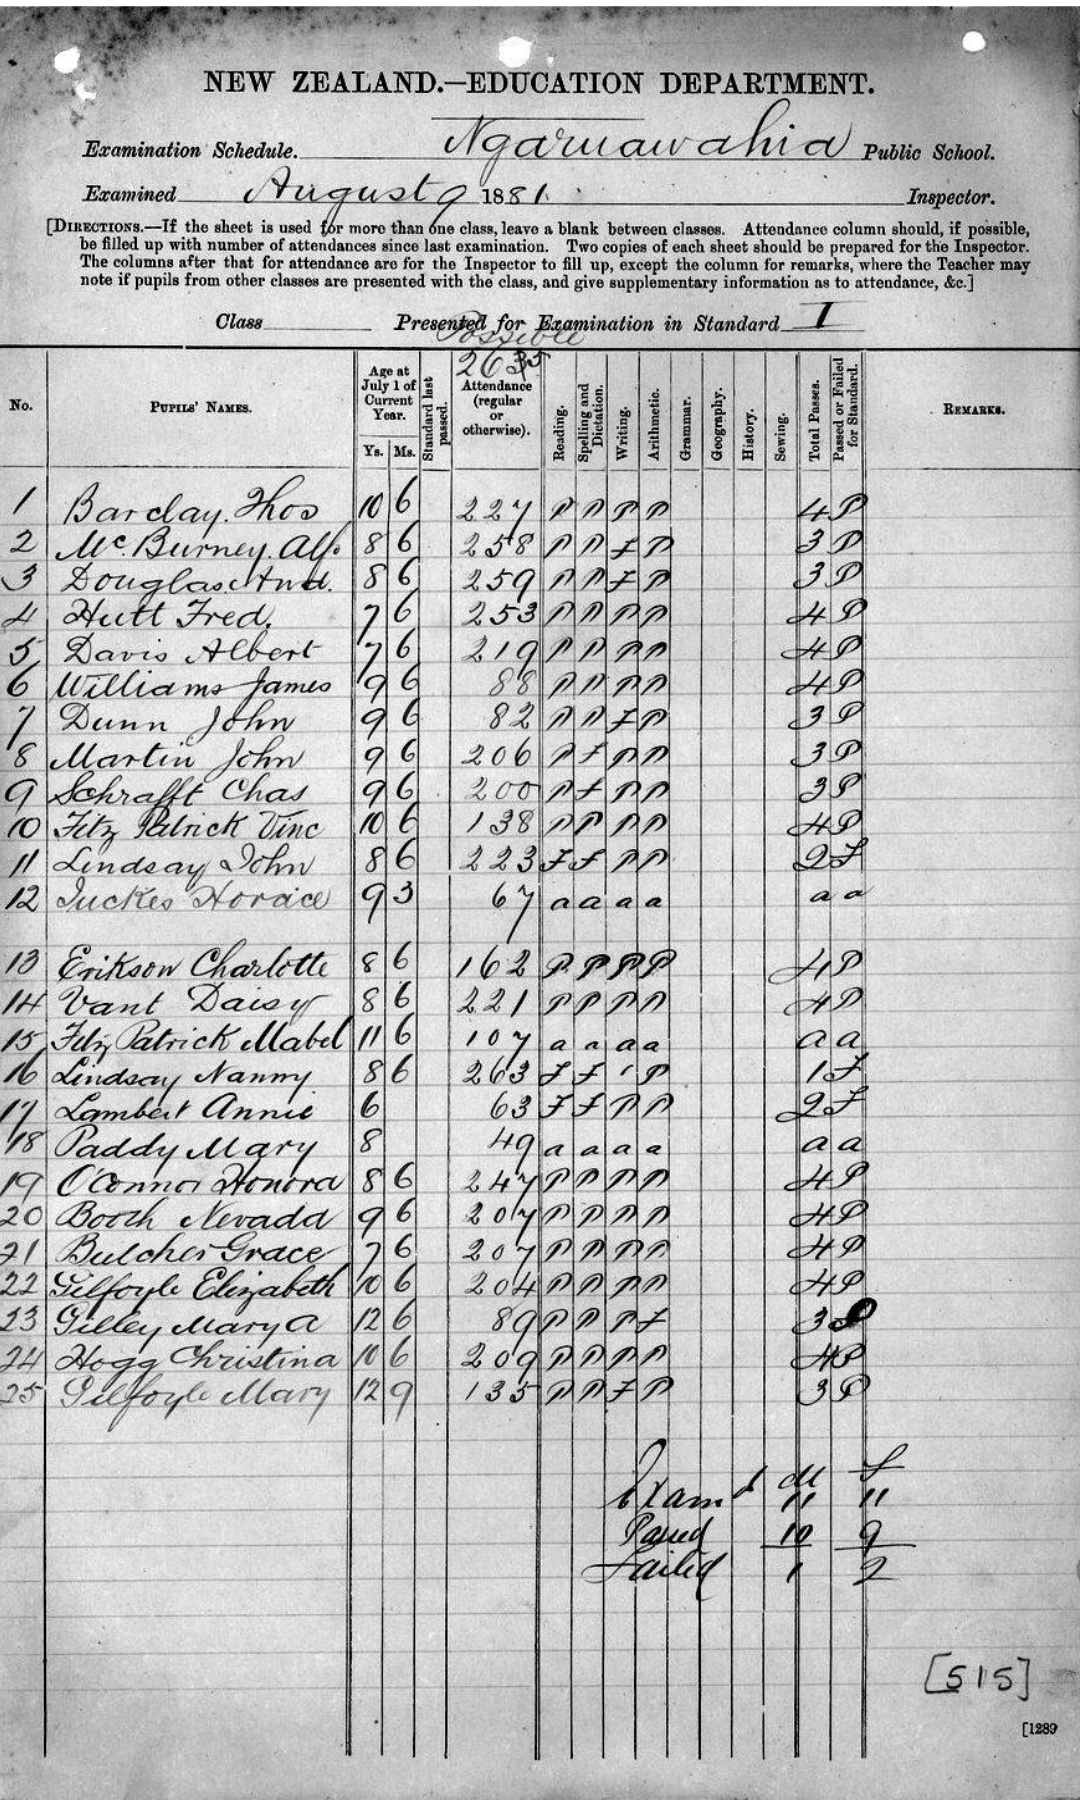 NEW ZEALAND.—EDUCATION DEPARTMENT.
Examination Schedule. Ngaruawahia Public School.
Examined August 9 1881. Inspector.
[DIRECTIONS.—If the sheet is used for more than one class, leave a blank between classes. Attendance column should, if possible,
be filled up with number of attendances since last examination. Two copies of each sheet should be prepared for the Inspector.
The columns after that for attendance are for the Inspector to fill up, except the column for remarks, where the Teacher may
note if pupils from other classes are presented with the class, and give supplementary information as to attendance, &c.]
Class Presented for Examination in Standard I
Possible
No. PUPILS' NAMES. Age at July 1 of Current Year. Ys. Ms. Standard last passed. Attendance (regular or otherwise). Reading. Spelling and Dictation. Writing. Arithmetic. Grammar. Geography. History. Sewing. Total Passes. Passed or Failed for Standard. REMARKS.
1 Barclay. Thos 10 6 227 P P P P 4 P
2 McBurney. Alf. 8 6 258 P P F P 3 P
3 Douglas And. 8 6 259 P P F P 3 P
4 Hutt Fred. 7 6 253 P P P P 4 P
5 Davis Albert 7 6 219 P P P P 4 P
6 Williams James 9 6 88 P P P P 4 P
7 Dunn John 9 6 82 P P F P 3 P
8 Martin John 9 6 206 P F P P 3 P
9 Schrafft Chas 9 6 200 P F P P 3 P
10 Fitz Patrick Vinc 10 6 138 P P P P 4 P
11 Lindsay John 8 6 223 F F P P 2 F
12 Juckes Horace 9 3 67 a a a a a a
13 Erikson Charlotte 8 6 162 P P P P 4 P
14 Vant Daisy 8 6 221 P P P P 4 P
15 Fitz Patrick Mabel 11 6 107 a a a a a a
16 Lindsay Nanny 8 6 263 F F ' P 1 F
17 Lambert Annie 6 63 F F P P 2 F
18 Paddy Mary 8 49 a a a a a a
19 O'Connor Honora 8 6 247 P P P P 4 P
20 Booth Nevada 9 6 207 P P P P 4 P
21 Butcher Grace 7 6 207 P P P P 4 P
22 Gilfoyle Elizabeth 10 6 204 P P P P 4 P
23 Gilley Mary A 12 6 89 P P P F 3 P
24 Hogg Christina 10 6 209 P P P P 4 P
25 Gilfoyle Mary 12 9 135 P P F P 3 P
M F
Examd 11 11
Passed 10 9
Failed 1 2
[515]
[1289